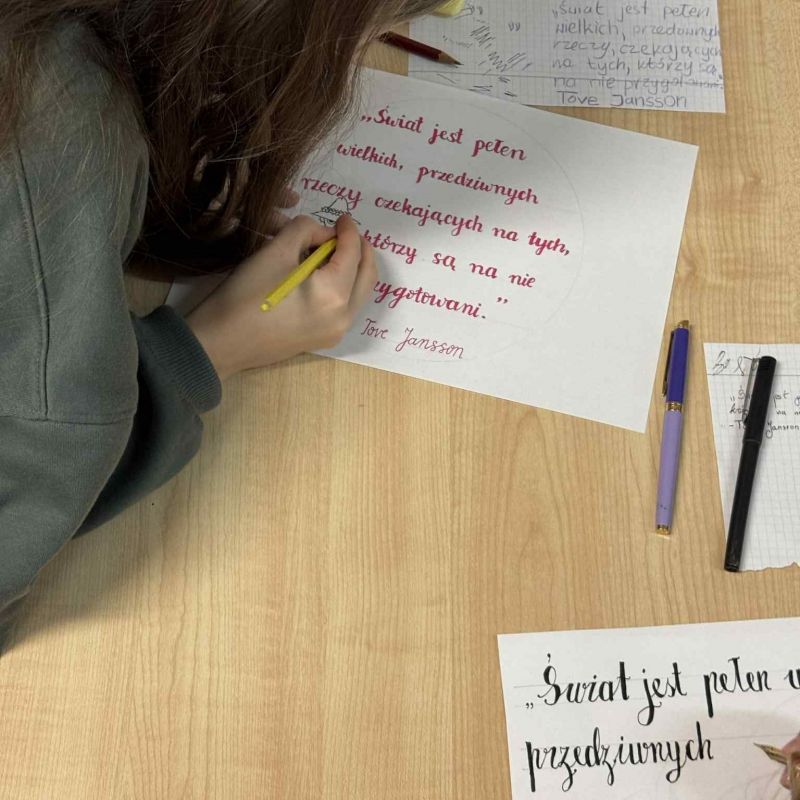 „Świat jest pełen
wielkich, przedziwnych
rzeczy, czekających
na tych, którzy są
na nie
Tove Jansson
„Świat jest pełen
wielkich, przedziwnych
rzeczy czekających na tych,
którzy są na nie
ygotowani.”
Tove Jansson
jest
na
„Świat jest pełen
przedziwnych